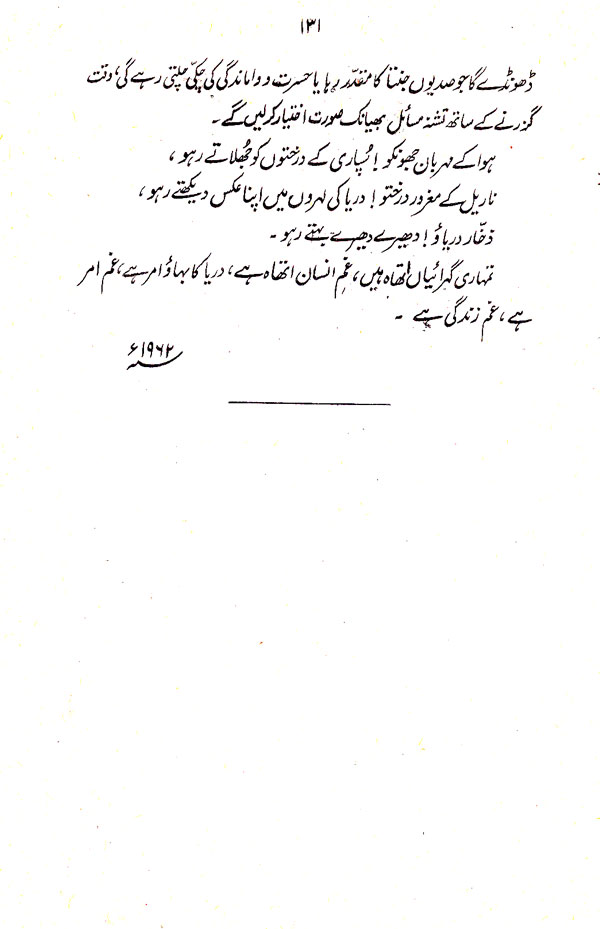 ۱۳۱
ڈھونڈے گا جو صدیوں جنتا کا مقدّر رہا یا حسرت و واماندگی کی چکّی چلتی رہے گی، وقت
گزرنے کے ساتھ تشنہ مسائل بھیانک صورت اختیار کرلیں گے۔
ہوا کے مہربان جھونکو! سُپاری کے درختوں کو جُھلاتے رہو،
ناریل کے مغرور درختو! دریا کی لہروں میں اپنا عکس دیکھتے رہو،
ذخّار دریاؤ! دھیرے دھیرے بہتے رہو۔
تمہاری گہرائیاں اتھاہ ہیں، غمِ انسان اتھاہ ہے، دریا کا بہاؤ امر ہے، غم امر
ہے، غم زندگی ہے۔
۱۹۶۲ء